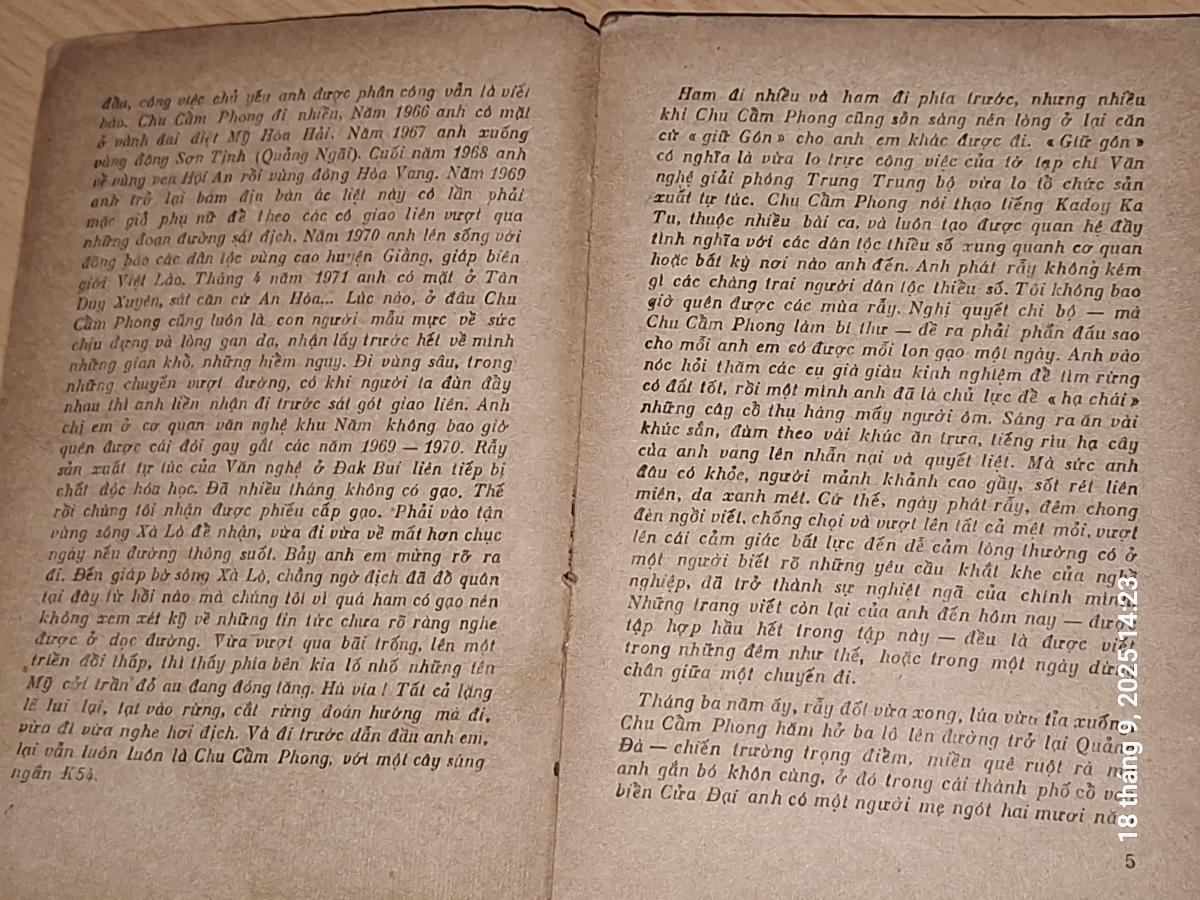 đầu, công việc chủ yếu anh được phân công vẫn là viết
báo. Chu Cầm Phong đi nhiều, Năm 1966 anh có mặt
ở vành đai diệt Mỹ Hòa Hải. Năm 1967 anh xuống
vùng đông Sơn Tịnh (Quảng Ngãi). Cuối năm 1968 anh
về vùng ven Hội An rồi vùng đông Hòa Vang. Năm 1969
anh trở lại bám địa bàn ác liệt này có lần phải
mặc giả phụ nữ để theo các cô giao liên vượt qua
những đoạn đường sát địch. Năm 1970 anh lên sống với
đồng bào các dân tộc vùng cao huyện Giàng, giáp biên
giới Việt Lào. Tháng 4 năm 1971 anh có mặt ở Tân
Duy Xuyên, sát căn cứ An Hòa... Lúc nào, ở đâu Chu
Cầm Phong cũng luôn là con người mẫu mực về sức
chịu đựng và lòng gan dạ, nhận lấy trước hết về mình
những gian khổ, những hiểm nguy. Đi vùng sâu, trong
những chuyến vượt đường, có khi người ta đùn đẩy
nhau thì anh liền nhận đi trước sát gót giao liên. Anh
chị em ở cơ quan văn nghệ khu Năm không bao giờ
quên được cái đói gay gắt các năm 1969 — 1970. Rẫy
sản xuất tự túc của Văn nghệ ở Đak Bui liên tiếp bị
chất độc hóa học. Đã nhiều tháng không có gạo. Thế
rồi chúng tôi nhận được phiếu cấp gạo. Phải vào tận
vùng sông Xà Lò để nhận, vừa đi vừa về mất hơn chục
ngày nếu đường thông suốt. Bảy anh em mừng rỡ ra
đi. Đến giáp bờ sông Xà Lò, chẳng ngờ địch đã đổ quân
tại đây từ hồi nào mà chúng tôi vì quá ham có gạo nên
không xem xét kỹ về những tin tức chưa rõ ràng nghe
được ở dọc đường. Vừa vượt qua bãi trống, lên một
triền đồi thấp, thì thấy phía bên kia lố nhố những tên
Mỹ cởi trần đỏ au đang đóng tăng. Hú vía! Tất cả lặng
lẽ lui lại, tạt vào rừng, cắt rừng đoán hướng mà đi,
vừa đi vừa nghe hơi địch. Và đi trước dẫn đầu anh em,
lại vẫn luôn luôn là Chu Cầm Phong, với một cây súng
ngắn K54.
Ham đi nhiều và ham đi phía trước, nhưng nhiều
khi Chu Cầm Phong cũng sồn sàng nén lòng ở lại căn
cứ « giữ Gôn » cho anh em khác được đi. « Giữ gôn »
có nghĩa là vừa lo trực công việc của tờ tạp chí Văn
nghệ giải phóng Trung Trung bộ vừa lo tổ chức sản
xuất tự túc. Chu Cầm Phong nói thạo tiếng Kadoy Ka
Tu, thuộc nhiều bài ca, và luôn tạo được quan hệ đầy
tình nghĩa với các dân tộc thiểu số xung quanh cơ quan
hoặc bất kỳ nơi nào anh đến. Anh phát rẫy không kém
gì các chàng trai người dân tộc thiểu số. Tôi không bao
giờ quên được các mùa rẫy. Nghị quyết chi bộ — mà
Chu Cầm Phong làm bí thư — đề ra phải phấn đấu sao
cho mỗi anh em có được mỗi lon gạo một ngày. Anh vào
nóc hỏi thăm các cụ già giàu kinh nghiệm để tìm rừng
có đất tốt, rồi một mình anh đã là chủ lực để « hạ chái »
những cây cổ thụ hàng mấy người ôm. Sáng ra ăn vài
khúc sắn, đùm theo vài khúc ăn trưa, tiếng rìu hạ cây
của anh vang lên nhẫn nại và quyết liệt. Mà sức anh
đâu có khỏe, người mảnh khảnh cao gầy, sốt rét liên
miên, da xanh mét. Cứ thế, ngày phát rẫy, đêm chong
đèn ngồi viết, chống chọi và vượt lên tất cả mệt mỏi, vượt
lên cái cảm giác bất lực đến dễ cảm lòng thường có ở
một người biết rõ những yêu cầu khắt khe của nghề
nghiệp, đã trở thành sự nghiệt ngã của chính mình
Những trang viết còn lại của anh đến hôm nay — được
tập hợp hầu hết trong tập này — đều là được viết
trong những đêm như thế, hoặc trong một ngày dừng
chân giữa một chuyến đi.
Tháng ba năm ấy, rẫy đốt vừa xong, lúa vừa tỉa xuống
Chu Cầm Phong hăm hở ba lô lên đường trở lại Quảng
Đà — chiến trường trọng điểm, miền quê ruột rà mà
anh gắn bó khôn cùng, ở đó trong cái thành phố cổ
biển Cửa Đại anh có một người mẹ ngót hai mươi
5
18 tháng 9, 2025 14:23